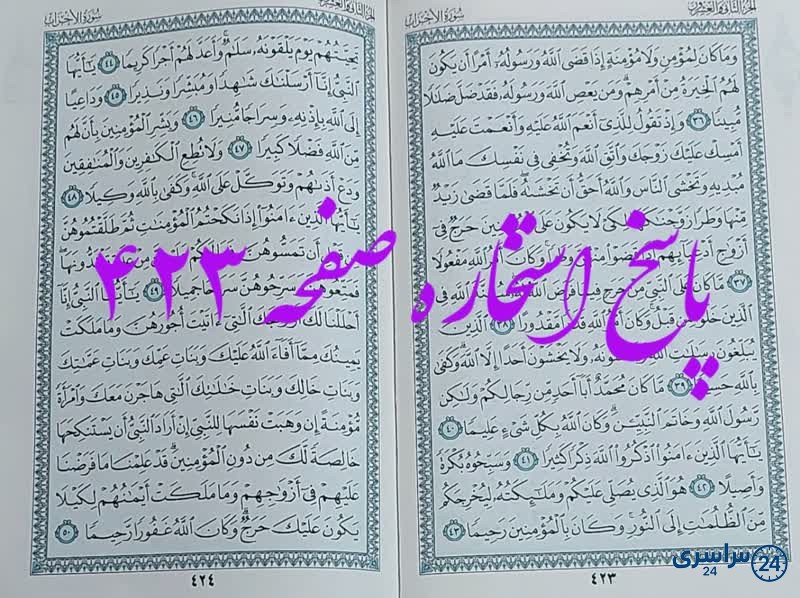 سُورَةُ الأَحْزَابِ
وَمَا كَانَ لِمُؤْمِنٍ وَلَا مُؤْمِنَةٍ إِذَا قَضَى اللَّهُ وَرَسُولُهُ أَمْرًا أَن يَكُونَ
لَهُمُ الْخِيَرَةُ مِنْ أَمْرِهِمْ وَمَن يَعْصِ اللَّهَ وَرَسُولَهُ فَقَدْ ضَلَّ ضَلَالًا
مُّبِينًا ٣٦ وَإِذْ تَقُولُ لِلَّذِي أَنْعَمَ اللَّهُ عَلَيْهِ وَأَنْعَمْتَ عَلَيْهِ
أَمْسِكْ عَلَيْكَ زَوْجَكَ وَاتَّقِ اللَّهَ وَتُخْفِي فِي نَفْسِكَ مَا اللَّهُ
مُبْدِيهِ وَتَخْشَى النَّاسَ وَاللَّهُ أَحَقُّ أَن تَخْشَاهُ فَلَمَّا قَضَى زَيْدٌ
مِّنْهَا وَطَرًا زَوَّجْنَاكَهَا لِكَيْ لَا يَكُونَ عَلَى الْمُؤْمِنِينَ حَرَجٌ فِي
أَزْوَاجِ أَدْعِيَائِهِمْ إِذَا قَضَوْا مِنْهُنَّ وَطَرًا وَكَانَ أَمْرُ اللَّهِ مَفْعُولًا
٣٧ مَّا كَانَ عَلَى النَّبِيِّ مِنْ حَرَجٍ فِيمَا فَرَضَ اللَّهُ لَهُ سُنَّةَ اللَّهِ فِي
الَّذِينَ خَلَوْا مِن قَبْلُ وَكَانَ أَمْرُ اللَّهِ قَدَرًا مَّقْدُورًا ٣٨ الَّذِينَ
يُبَلِّغُونَ رِسَالَاتِ اللَّهِ وَيَخْشَوْنَهُ وَلَا يَخْشَوْنَ أَحَدًا إِلَّا اللَّهَ وَكَفَى
بِاللَّهِ حَسِيبًا ٣٩ مَّا كَانَ مُحَمَّدٌ أَبَا أَحَدٍ مِّن رِّجَالِكُمْ وَلَٰكِن
رَّسُولَ اللَّهِ وَخَاتَمَ النَّبِيِّينَ وَكَانَ اللَّهُ بِكُلِّ شَيْءٍ عَلِيمًا ٤٠
يَا أَيُّهَا الَّذِينَ آمَنُوا اذْكُرُوا اللَّهَ ذِكْرًا كَثِيرًا ٤١ وَسَبِّحُوهُ بُكْرَةً
وَأَصِيلًا ٤٢ هُوَ الَّذِي يُصَلِّي عَلَيْكُمْ وَمَلَائِكَتُهُ لِيُخْرِجَكُم
مِّنَ الظُّلُمَاتِ إِلَى النُّورِ وَكَانَ بِالْمُؤْمِنِينَ رَحِيمًا ٤٣
٤٢٣
سُورَةُ الأَحْزَابِ
تَحِيَّتُهُمْ يَوْمَ يَلْقَوْنَهُ سَلَامٌ وَأَعَدَّ لَهُمْ أَجْرًا كَرِيمًا ٤٤ يَا أَيُّهَا
النَّبِيُّ إِنَّا أَرْسَلْنَاكَ شَاهِدًا وَمُبَشِّرًا وَنَذِيرًا ٤٥ وَدَاعِيًا
إِلَى اللَّهِ بِإِذْنِهِ وَسِرَاجًا مُّنِيرًا ٤٦ وَبَشِّرِ الْمُؤْمِنِينَ بِأَنَّ لَهُم
مِّنَ اللَّهِ فَضْلًا كَبِيرًا ٤٧ وَلَا تُطِعِ الْكَافِرِينَ وَالْمُنَافِقِينَ
وَدَعْ أَذَاهُمْ وَتَوَكَّلْ عَلَى اللَّهِ وَكَفَى بِاللَّهِ وَكِيلًا ٤٨
يَا أَيُّهَا الَّذِينَ آمَنُوا إِذَا نَكَحْتُمُ الْمُؤْمِنَاتِ ثُمَّ طَلَّقْتُمُوهُنَّ
مِن قَبْلِ أَن تَمَسُّوهُنَّ فَمَا لَكُمْ عَلَيْهِنَّ مِنْ عِدَّةٍ تَعْتَدُّونَهَا
فَمَتِّعُوهُنَّ وَسَرِّحُوهُنَّ سَرَاحًا جَمِيلًا ٤٩ يَا أَيُّهَا النَّبِيُّ إِنَّا
أَحْلَلْنَا لَكَ أَزْوَاجَكَ اللَّاتِي آتَيْتَ أُجُورَهُنَّ وَمَا مَلَكَتْ
يَمِينُكَ مِمَّا أَفَاءَ اللَّهُ عَلَيْكَ وَبَنَاتِ عَمِّكَ وَبَنَاتِ عَمَّاتِكَ
وَبَنَاتِ خَالِكَ وَبَنَاتِ خَالَاتِكَ اللَّاتِي هَاجَرْنَ مَعَكَ وَامْرَأَةً
مُّؤْمِنَةً إِن وَهَبَتْ نَفْسَهَا لِلنَّبِيِّ إِنْ أَرَادَ النَّبِيُّ أَن يَسْتَنكِحَهَا
خَالِصَةً لَّكَ مِن دُونِ الْمُؤْمِنِينَ قَدْ عَلِمْنَا مَا فَرَضْنَا
عَلَيْهِمْ فِي أَزْوَاجِهِمْ وَمَا مَلَكَتْ أَيْمَانُهُمْ لِكَيْلَا
يَكُونَ عَلَيْكَ حَرَجٌ وَكَانَ اللَّهُ غَفُورًا رَّحِيمًا ٥٠
٤٢٤
پاسخ استخاره صفحه ۴۲۳
سراسری
24
24